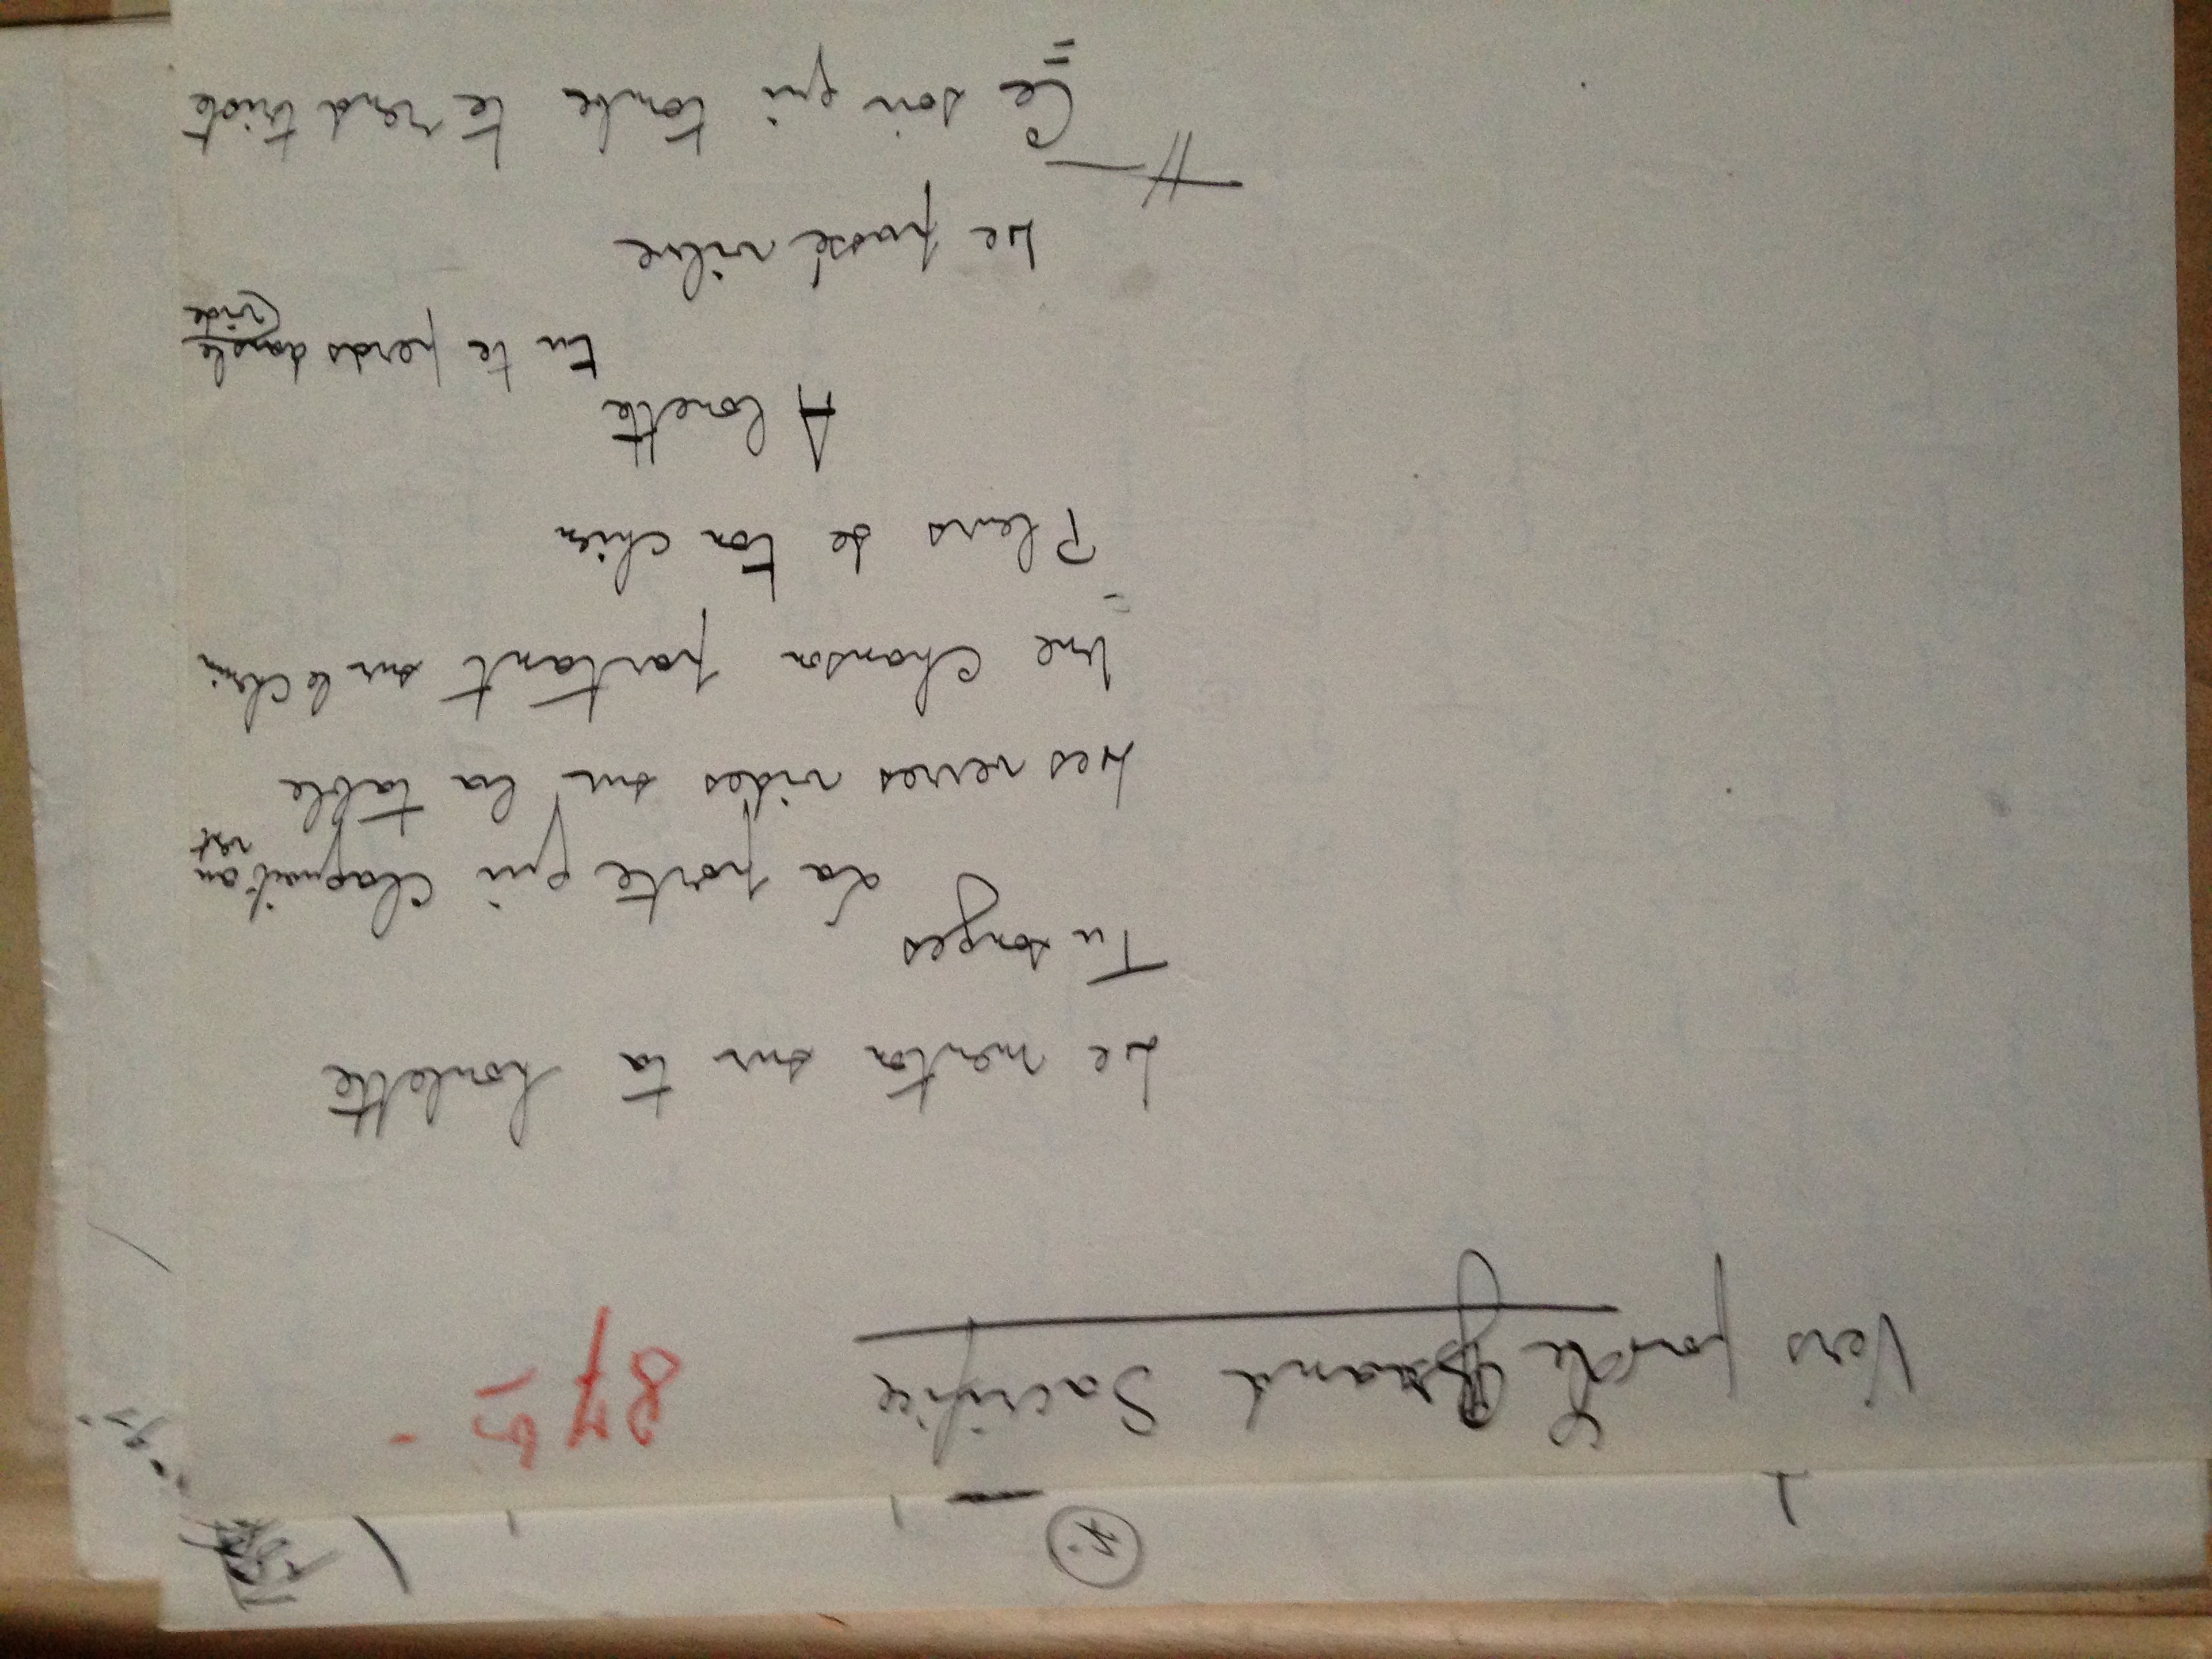 Vers pour Le Grand Sacrifice 87 bis -
Le menton sur ta houlette
Tu songes
La porte qui claquait au
vent
Les verres vides sur la table
Une chanson partant sur le chemin
Pleurs de ton chien
Alouette
tu te perds dans le
vide
Le passé vibre
Ce soir qui tombe te rend triste